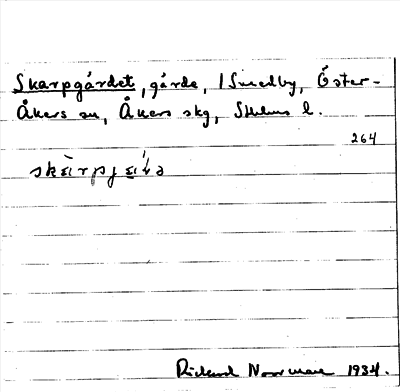 Skarpgärdet, gärde, 1 Smedby, Öster-
Åkers sn, Åkers skg, Sthlms l.
264
Rickard Norrman 1934.